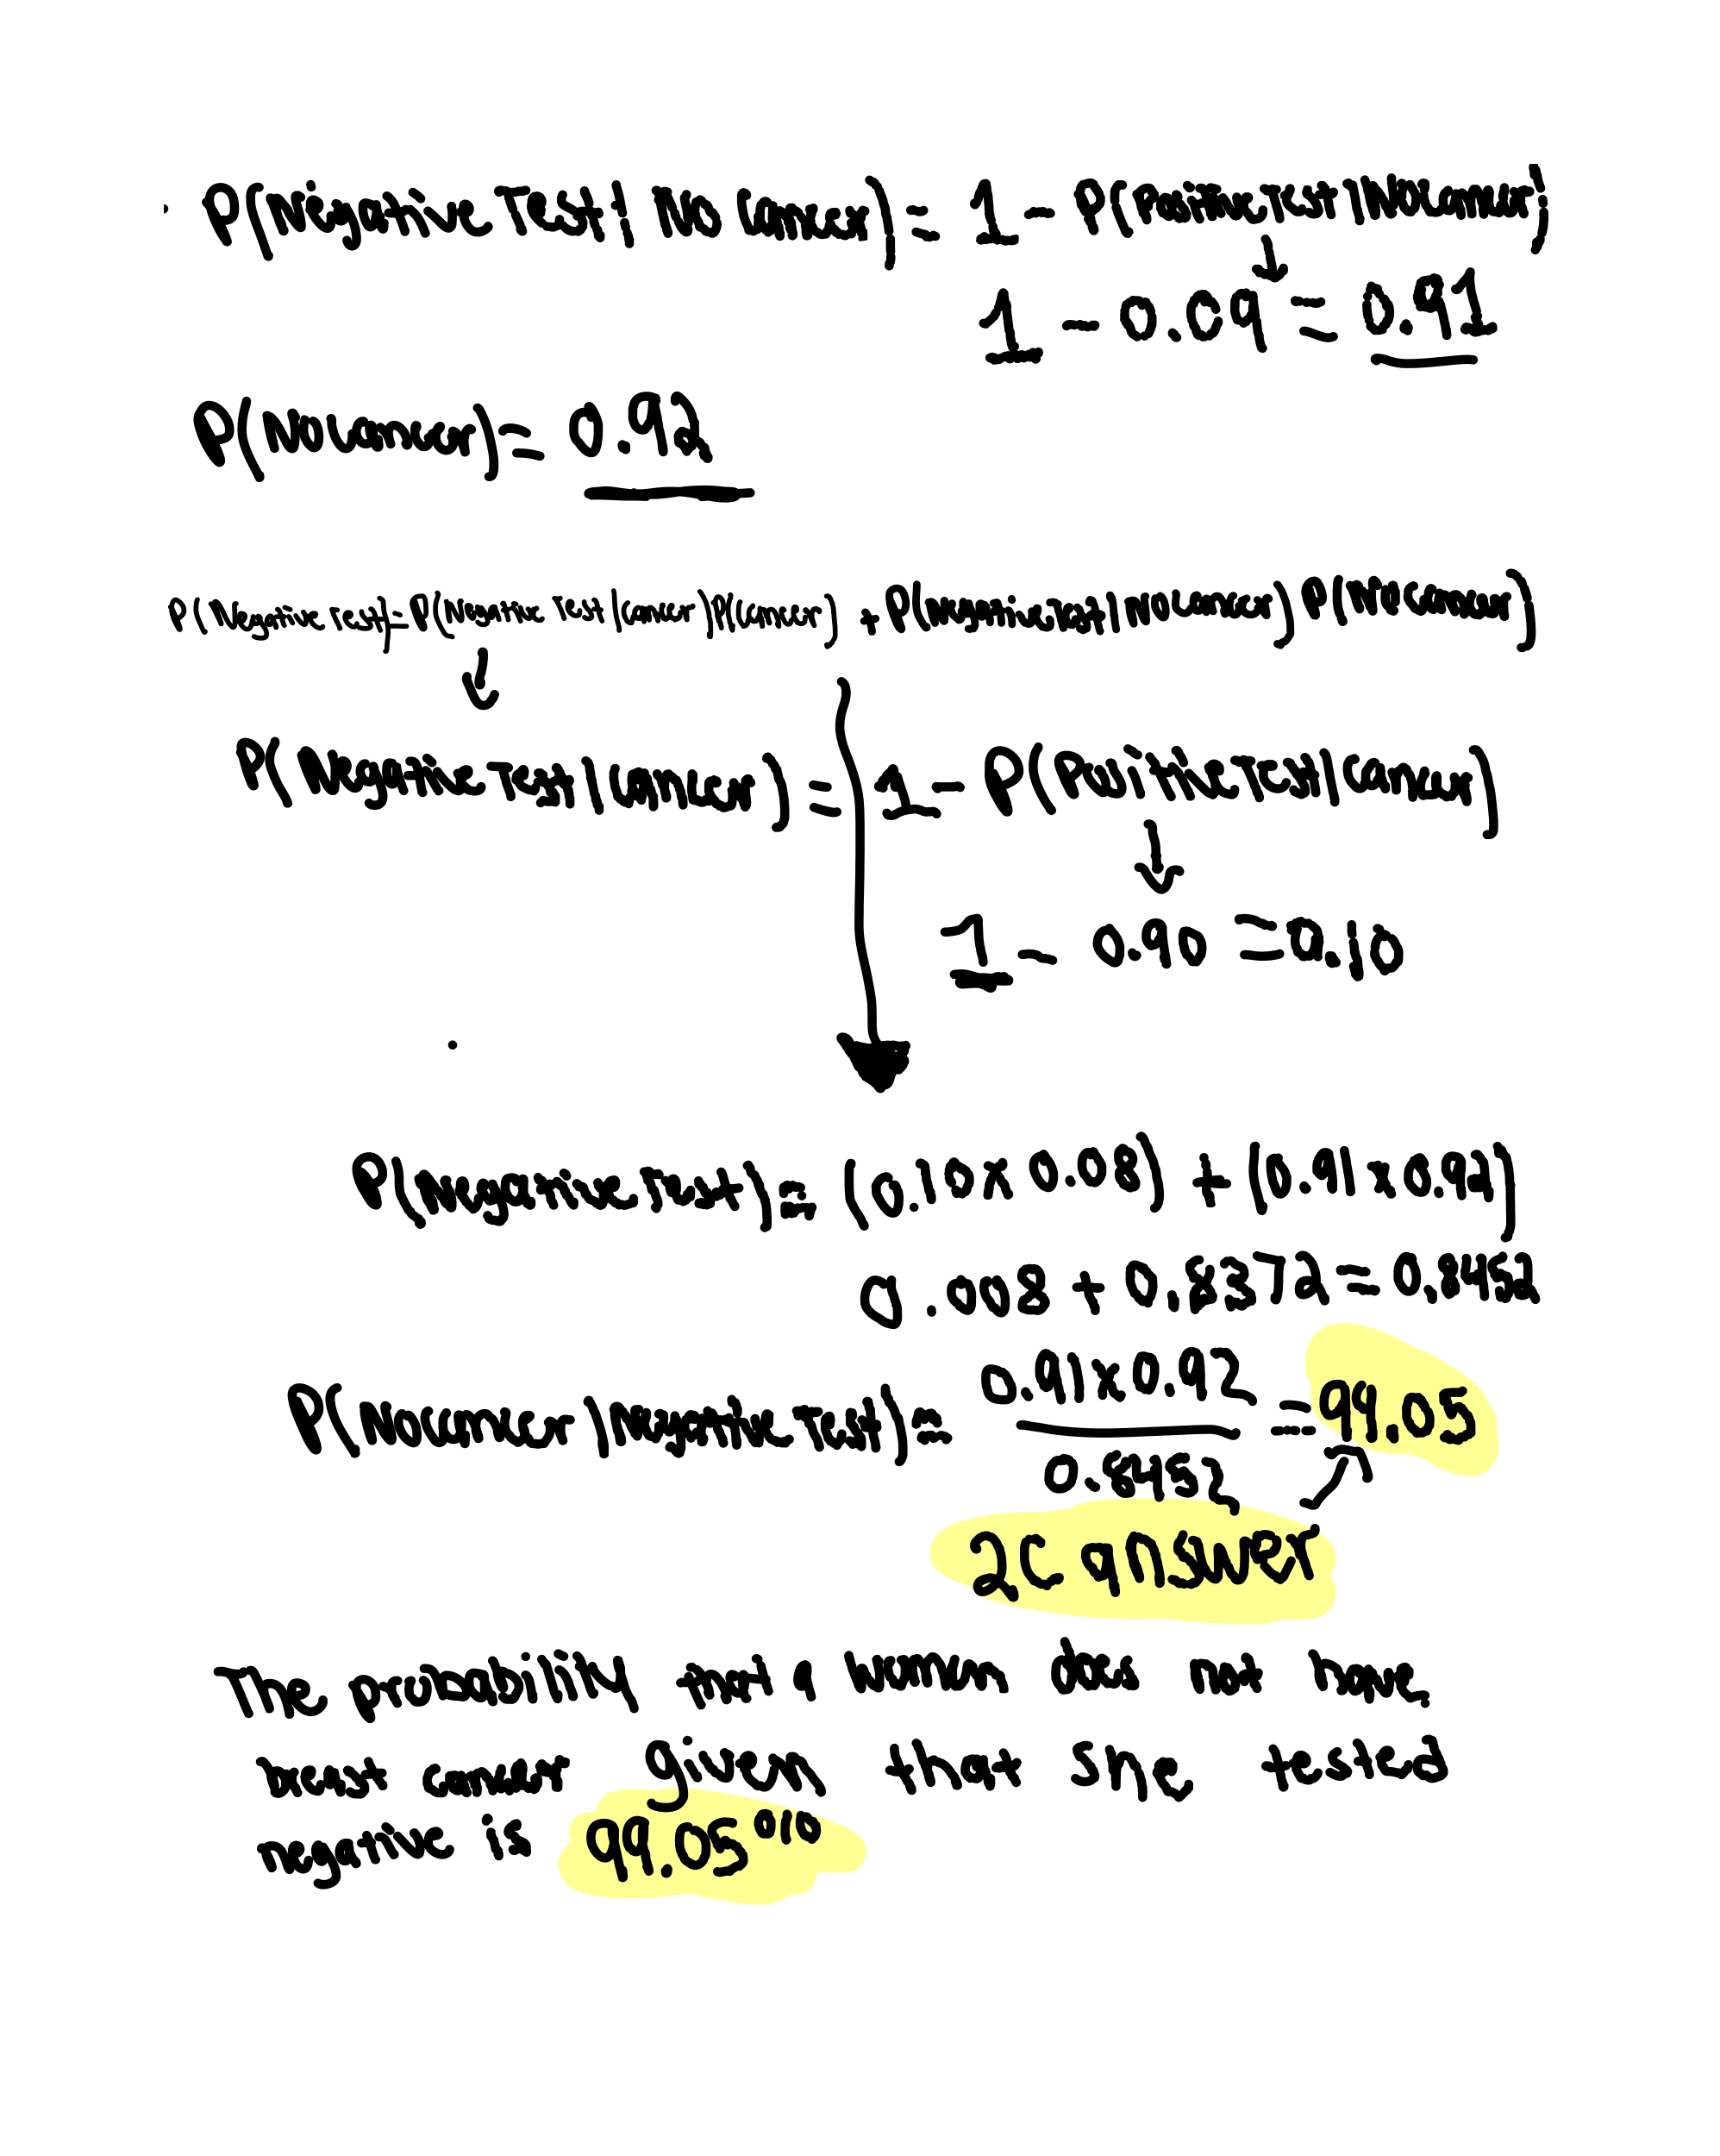 P(Negative Test | No Cancer) = 1 - P(Positive Test | No Cancer)
1 - 0.09 = 0.91
P(No Cancer) = 0.92
P(Negative Test) = P(Negative Test | Cancer) P(Cancer) + P(Negative Test | No Cancer) P(No Cancer)
P(Negative Test | Cancer) = 1 - P(Positive Test | Cancer)
1 - 0.90 = 0.10
P(Negative Test) = (0.10 x 0.08) + (0.91 x 0.92)
0.008 + 0.8372 = 0.8452
P(No Cancer | Negative Test) = 0.91 x 0.92 / 0.8452 = 99.05
2C answer
The probability that a woman does not have
breast cancer given that she tested
negative is 99.05%